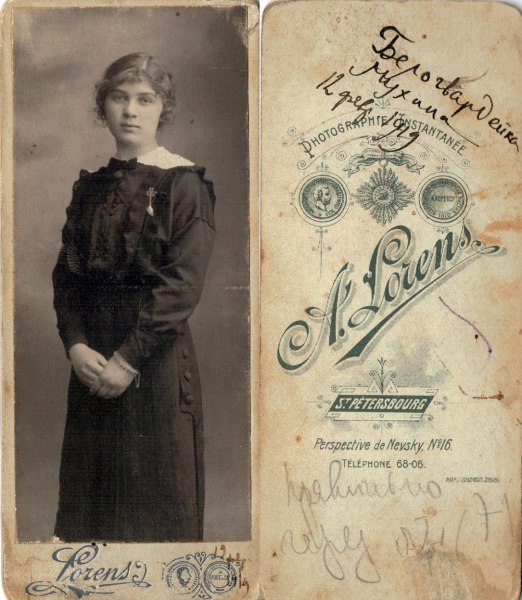 Lorens
12 фев.
1919
Белогвардейка
Мухина
12 фев. 1919
PHOTOGRAPHIE INSTANTANÉE
A. Lorens.
ST. PÉTERSBOURG
Perspective de Nevsky, №16.
TÉLÉPHONE 68-06.
(7)